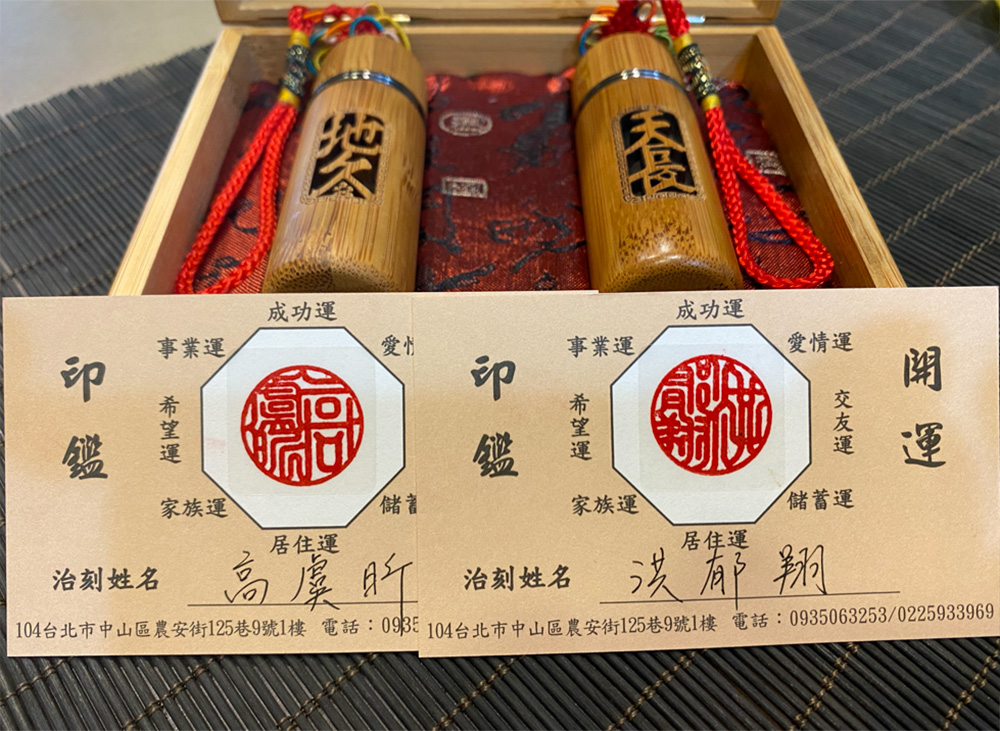 地久
天長
印鑑
成功運
事業運
愛
希望運
家族運
儲
居住運
高虞昕
治刻姓名 高虞昕
104台北市中山區農安街125巷9號1樓 電話：0935
印鑑
開運
成功運
事業運
愛情運
希望運
交友運
家族運
儲蓄運
居住運
洪郁翔
治刻姓名 洪郁翔
104台北市中山區農安街125巷9號1樓 電話：0935063253/0225933969